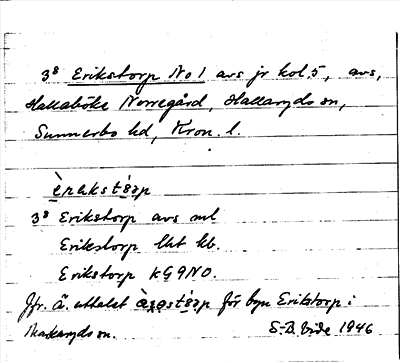 3⁸ Erikstorp No 1 avs jr kol. 5, avs,
Hallaböke Norregård, Hallaryds sn,
Sunnerbo hd, Kron. l.
3⁸ Erikstorp avs ml
Erikstorp lht kb.
Erikstorp KG9NO.
Jfr. ä. uttalet för byn Erikstorp i
Markaryds sn. S-B Vide 1946